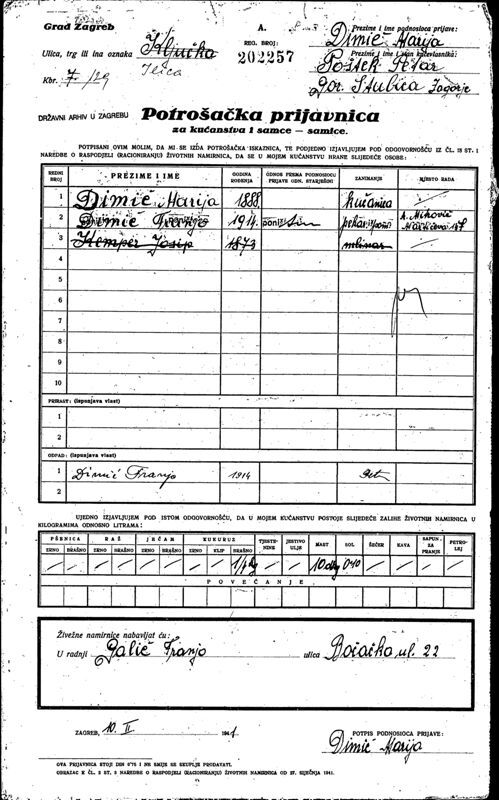 Grad Zagreb
A.
Prezime i ime podnosioca prijave:
Dimić Marija
Ulica, trg ili ina oznaka
REG. BROJ:
202257
Prezime i ime i stan kućevlasnika:
Poštek Petar
Kbr. 7/29
Ješca
Gor. Stubica Zagorje
DRŽAVNI ARHIV U ZAGREBU
Potrošačka prijavnica
za kućanstva i samce — samice.
POTPISANI OVIM MOLIM, DA MI SE IZDA POTROŠAČKA ISKAZNICA, TE PODJEDNO IZJAVLJUJEM POD ODGOVORNOŠĆU IZ ČL. 13 ST. 1
NAREDBE O RASPODJELI (RACIONIRANJU) ŽIVOTNIH NAMIRNICA, DA SE U MOJEM KUĆANSTVU HRANE SLIJEDEĆE OSOBE:
REDNI BROJ PREZIME I IME GODINA ROĐENJA ODNOS PREMA PODNOSIOCU PRIJAVE ODN. STARJEŠINI ZANIMANJE MJESTO RADA
1 Dimić Marija 1888 kućanica
2 Dimić Franjo 1914 sin pekar. pom.
3 Kemper Josip 1873 mlinar
4
5
6
7
8
9
10
PRIRAST: (ispunjava vlast)
1
2
OTPAD: (ispunjava vlast)
1 Dimić Franjo 1914
2
UJEDNO IZJAVLJUJEM POD ISTOM ODGOVORNOŠĆU, DA U MOJEM KUĆANSTVU POSTOJE SLIJEDEĆE ZALIHE ŽIVOTNIH NAMIRNICA U
KILOGRAMIMA ODNOSNO LITRAMA:
PŠENICA RAŽ JEČAM KUKURUZ TJESTENINE JESTIVO ULJE MAST SOL ŠEĆER KAVA SAPUN ZA PRANJE PETROLEJ
ZRNO BRAŠNO ZRNO BRAŠNO ZRNO BRAŠNO ZRNO KLIP BRAŠNO
1/4 kg 10 dkg 0'40
POVEĆANJE
Živežne namirnice nabavljat ću:
U radnji Galić Franjo ulica Bočačka ul. 22
ZAGREB, 10. II 1941
POTPIS PODNOSIOCA PRIJAVE:
Dimić Marija
OVA PRIJAVNICA STOJI DIN 0'75 I NE SMIJE SE SKUPLJE PRODAVATI.
OBRAZAC K ČL. 2 ST. 3 NAREDBE O RASPODJELI (RACIONIRANJU) ŽIVOTNIH NAMIRNICA OD 27. SIJEČNJA 1941.